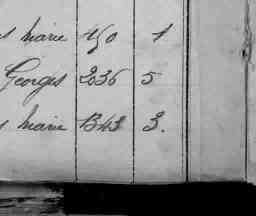 s Marie 40 1
Georges 2036 5
s Marie 1343 3.